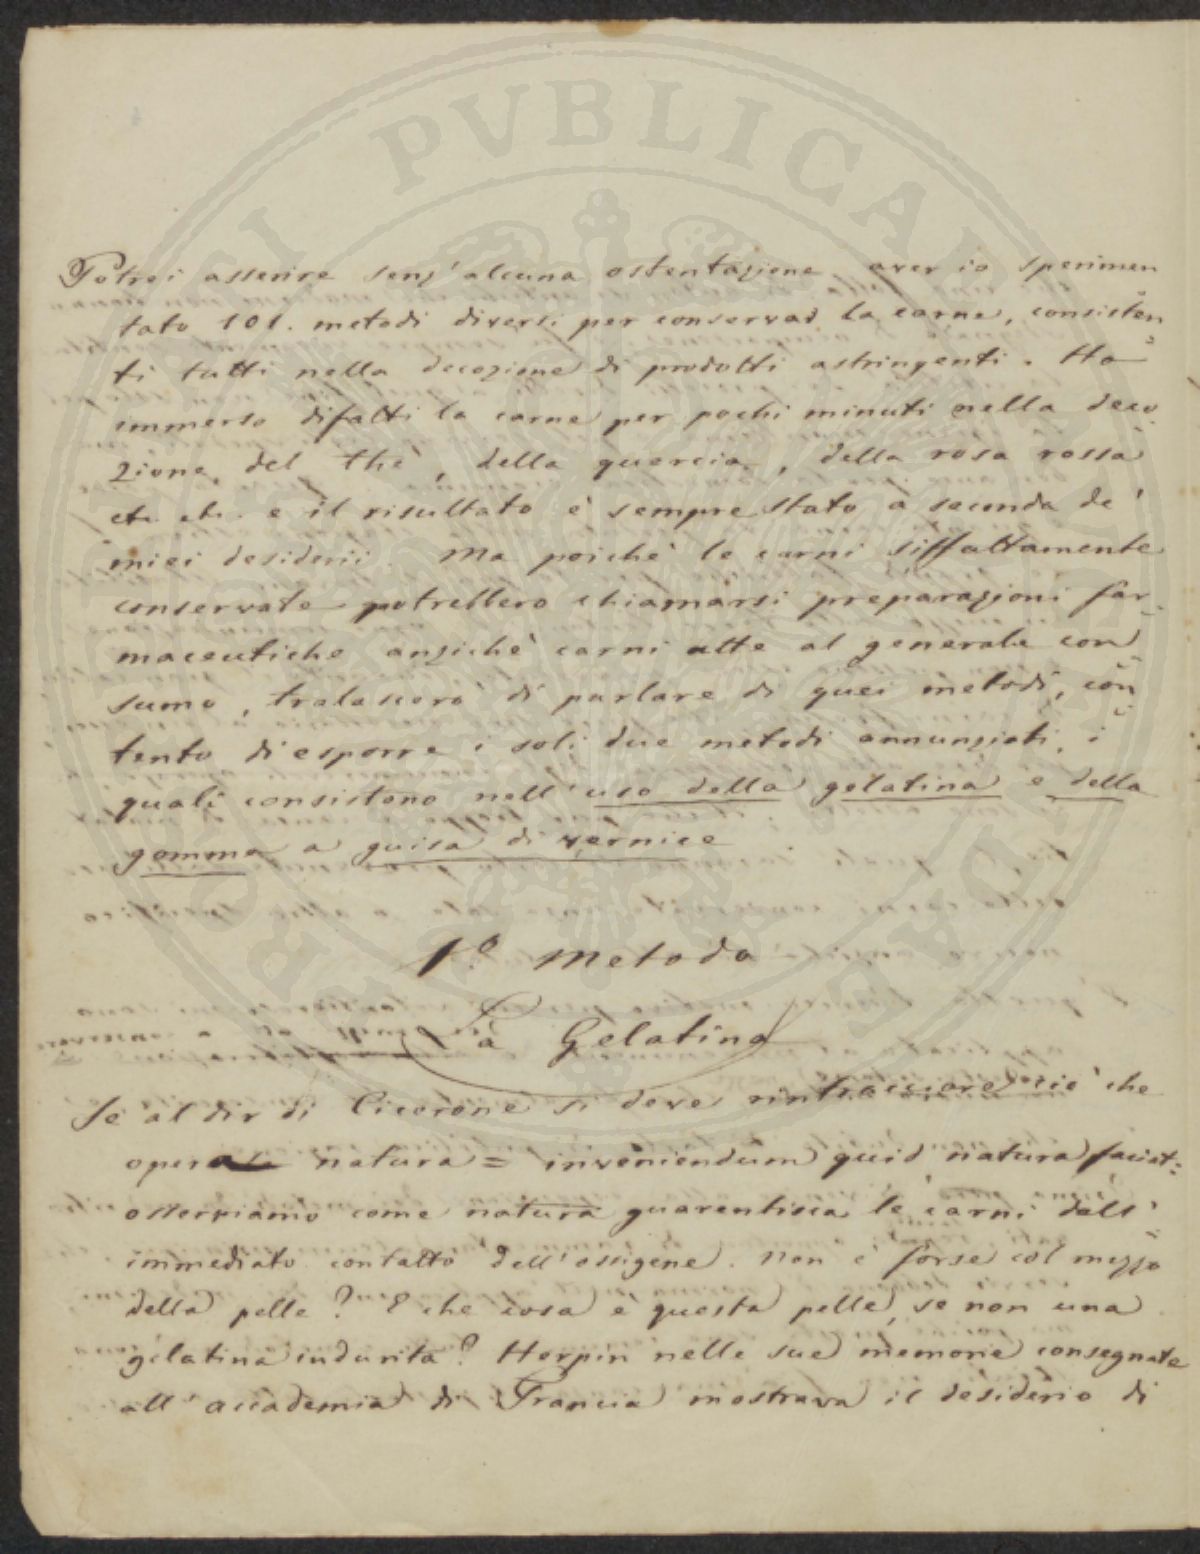 Potrei asserire senz'alcuna ostentazione aver io sperimen
tato 101. metodi diversi per conservar la carne, consisten
ti tutti nella decozione di prodotti astringenti. Ho
immerso difatti la carne per pochi minuti nella deco
zione del thè, della quercia, della rosa rossa
etc. etc. e il risultato è sempre stato a seconda de'
miei desiderii. Ma poichè le carni siffattamente
conservate potrebbero chiamarsi preparazioni far-
maceutiche anzichè carni atte al generale con
sumo, tralascerò di parlare di quei metodi, con
tento di esporre i soli due metodi annunziati, i
quali consistono nell'uso della gelatina e della
gomma a guisa di vernice
1.º Metodo
La Gelatina
Se al dir di Cicerone si deve rintracciare ciò che
opera natura = inveniendum quid natura faciat =
osserviamo come natura guarentisca le carni dall'
immediato contatto dell'ossigene. Non è forse col mezzo
della pelle? E che cosa è questa pelle, se non una
gelatina indurita? Herpin nelle sue memorie consegnate
all'accademia di Francia mostrava il desiderio di
PVBLICAE